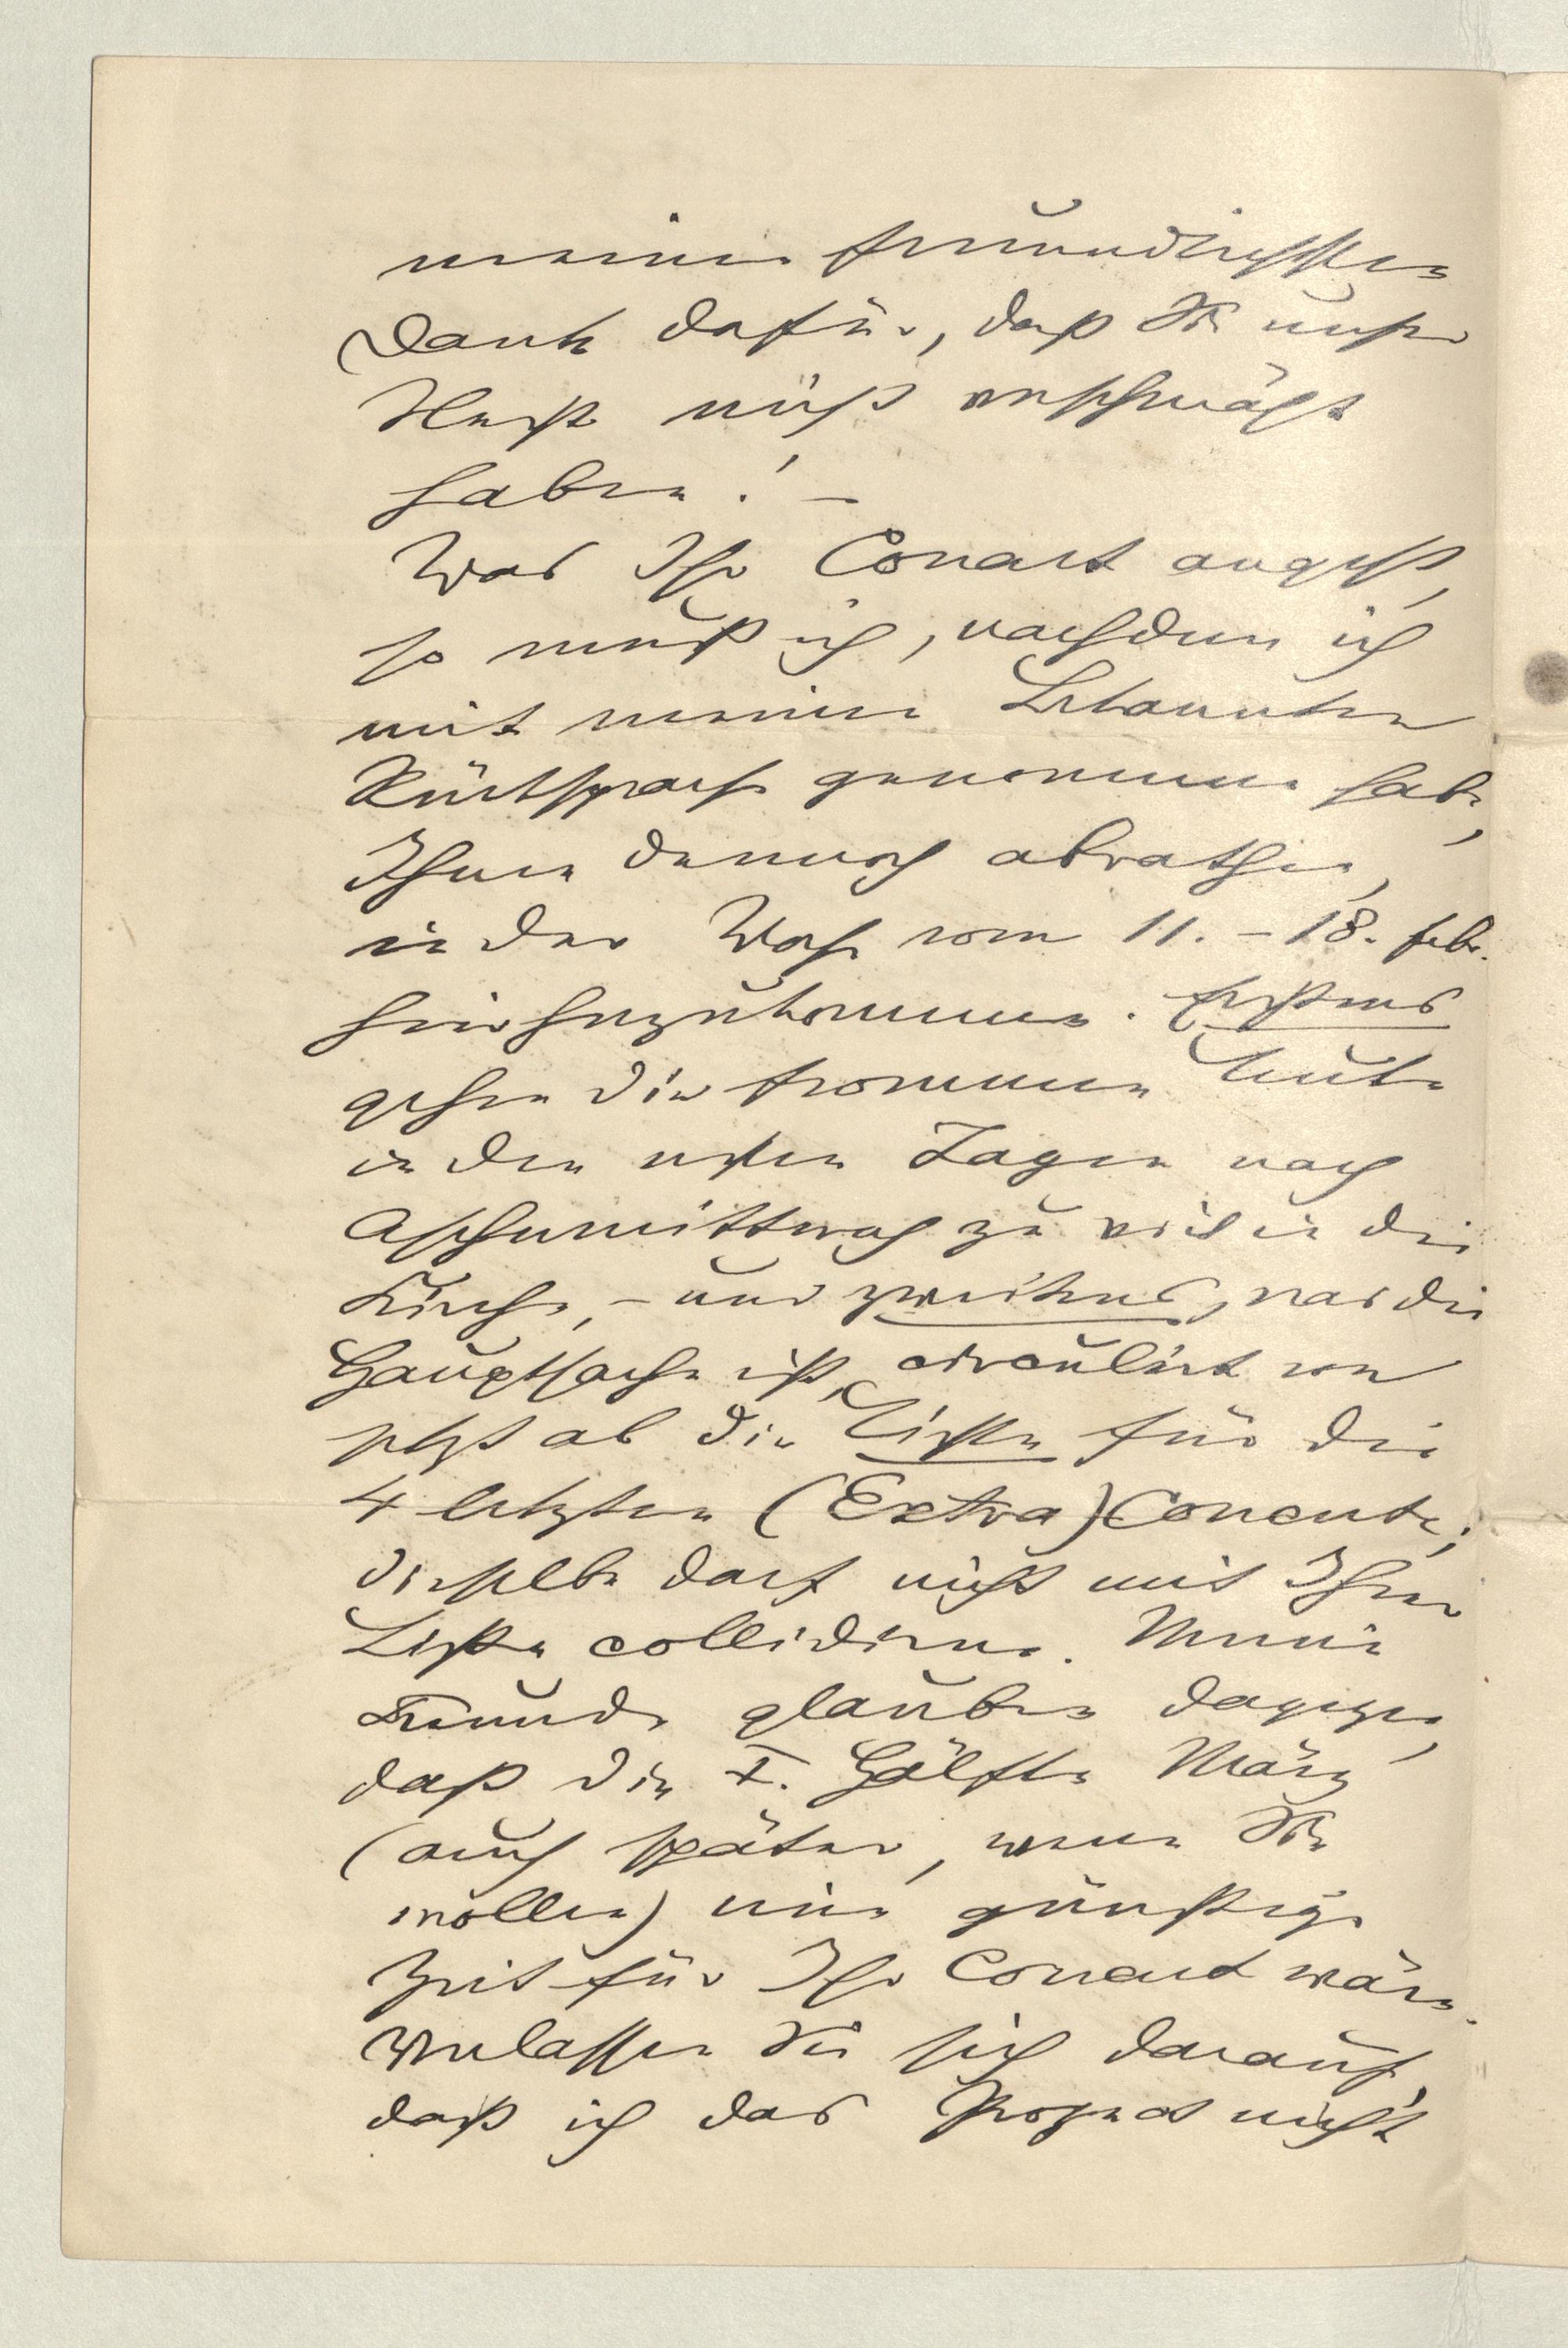 meinen freundlichsten
Dank dafür, daß Sie unser
Nest nicht verschmäht
haben! –
Was Ihr Concert angeht,
so muß ich, nachdem ich
mit meinen Bekannten
Rücksprache genommen habe,
Ihnen dennoch abrathen,
in der Woche vom 11. – 18. febr.
hierherzukommen. Erstens
gehen die frommen Leute
in den ersten Tagen nach
Aschermittwoch zu viel in die
Kirche, – und zweitens, was die
Hauptsache ist, circulirt von
jetzt ab die Liste für die
4 letzten (Extra) Concerte;
dieselbe darf nicht mit Ihrer
Liste collidiren. Meine
Freunde glauben dagegen,
daß die I. Hälfte März
(auch später, wenn Sie
wollen) eine günstige
Zeit für Ihr Concert wäre.
Verlassen Sie sich darauf,
daß ich das Project nicht